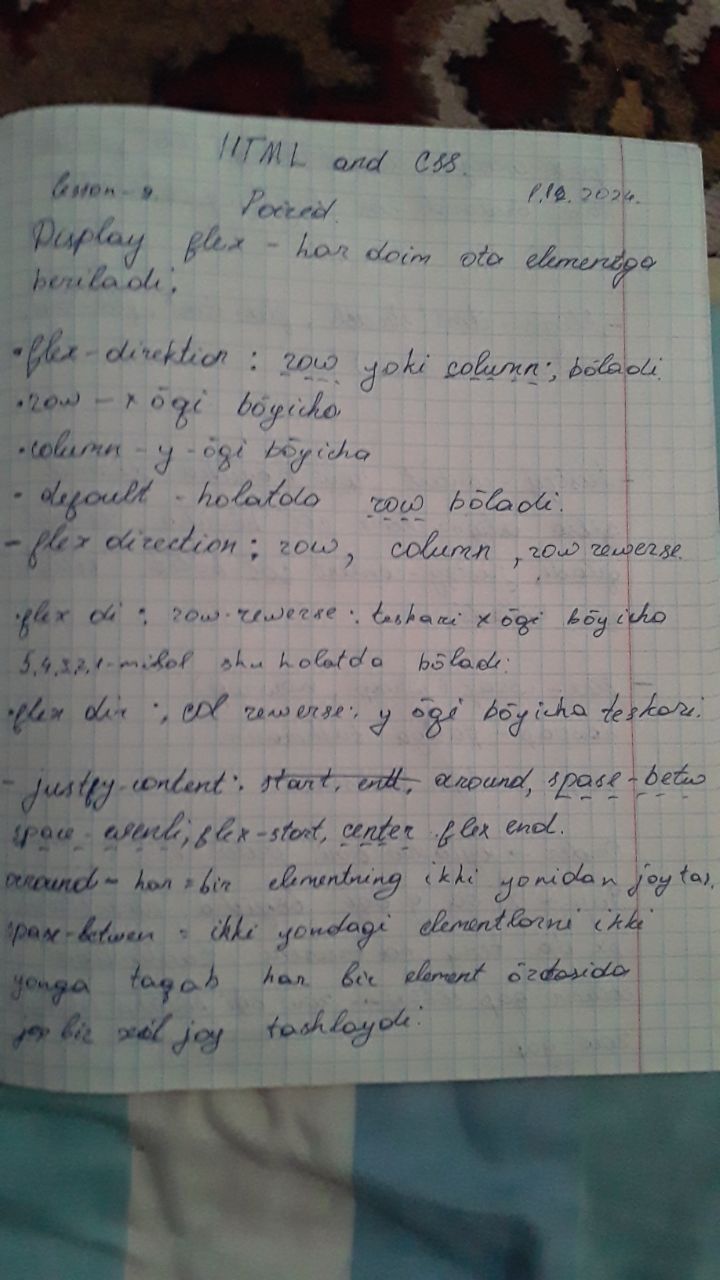 HTML and CSS.
lesson-9. 1.12.2024.
Poired.
Display flex - har doim ota elementga
beriladi;
•flex-direktion : row yoki column:, bōladi.
•row - x ōqi bōyicha
•column - y - ōqi bōyicha
- default - holatda row bōladi.
- flex direction: row, column, row rewerse.
•flex di : row-rewerse: teskari x ōqi bōyicha
5,4,3,2,1-misol shu holatda bōladi:
•flex dir :, col rewerse:, y ōqi bōyicha teskari.
- justfy-content: start, end, around, spase-betw
space-evenli, flex-start, center flex end.
around - har-bir elementning ikki yonidan joy tas.
spase-betwen = ikki yondagi elementlarni ikki
yonga taqab har bir element ōrtasida
bir xil joy tashlaydi: